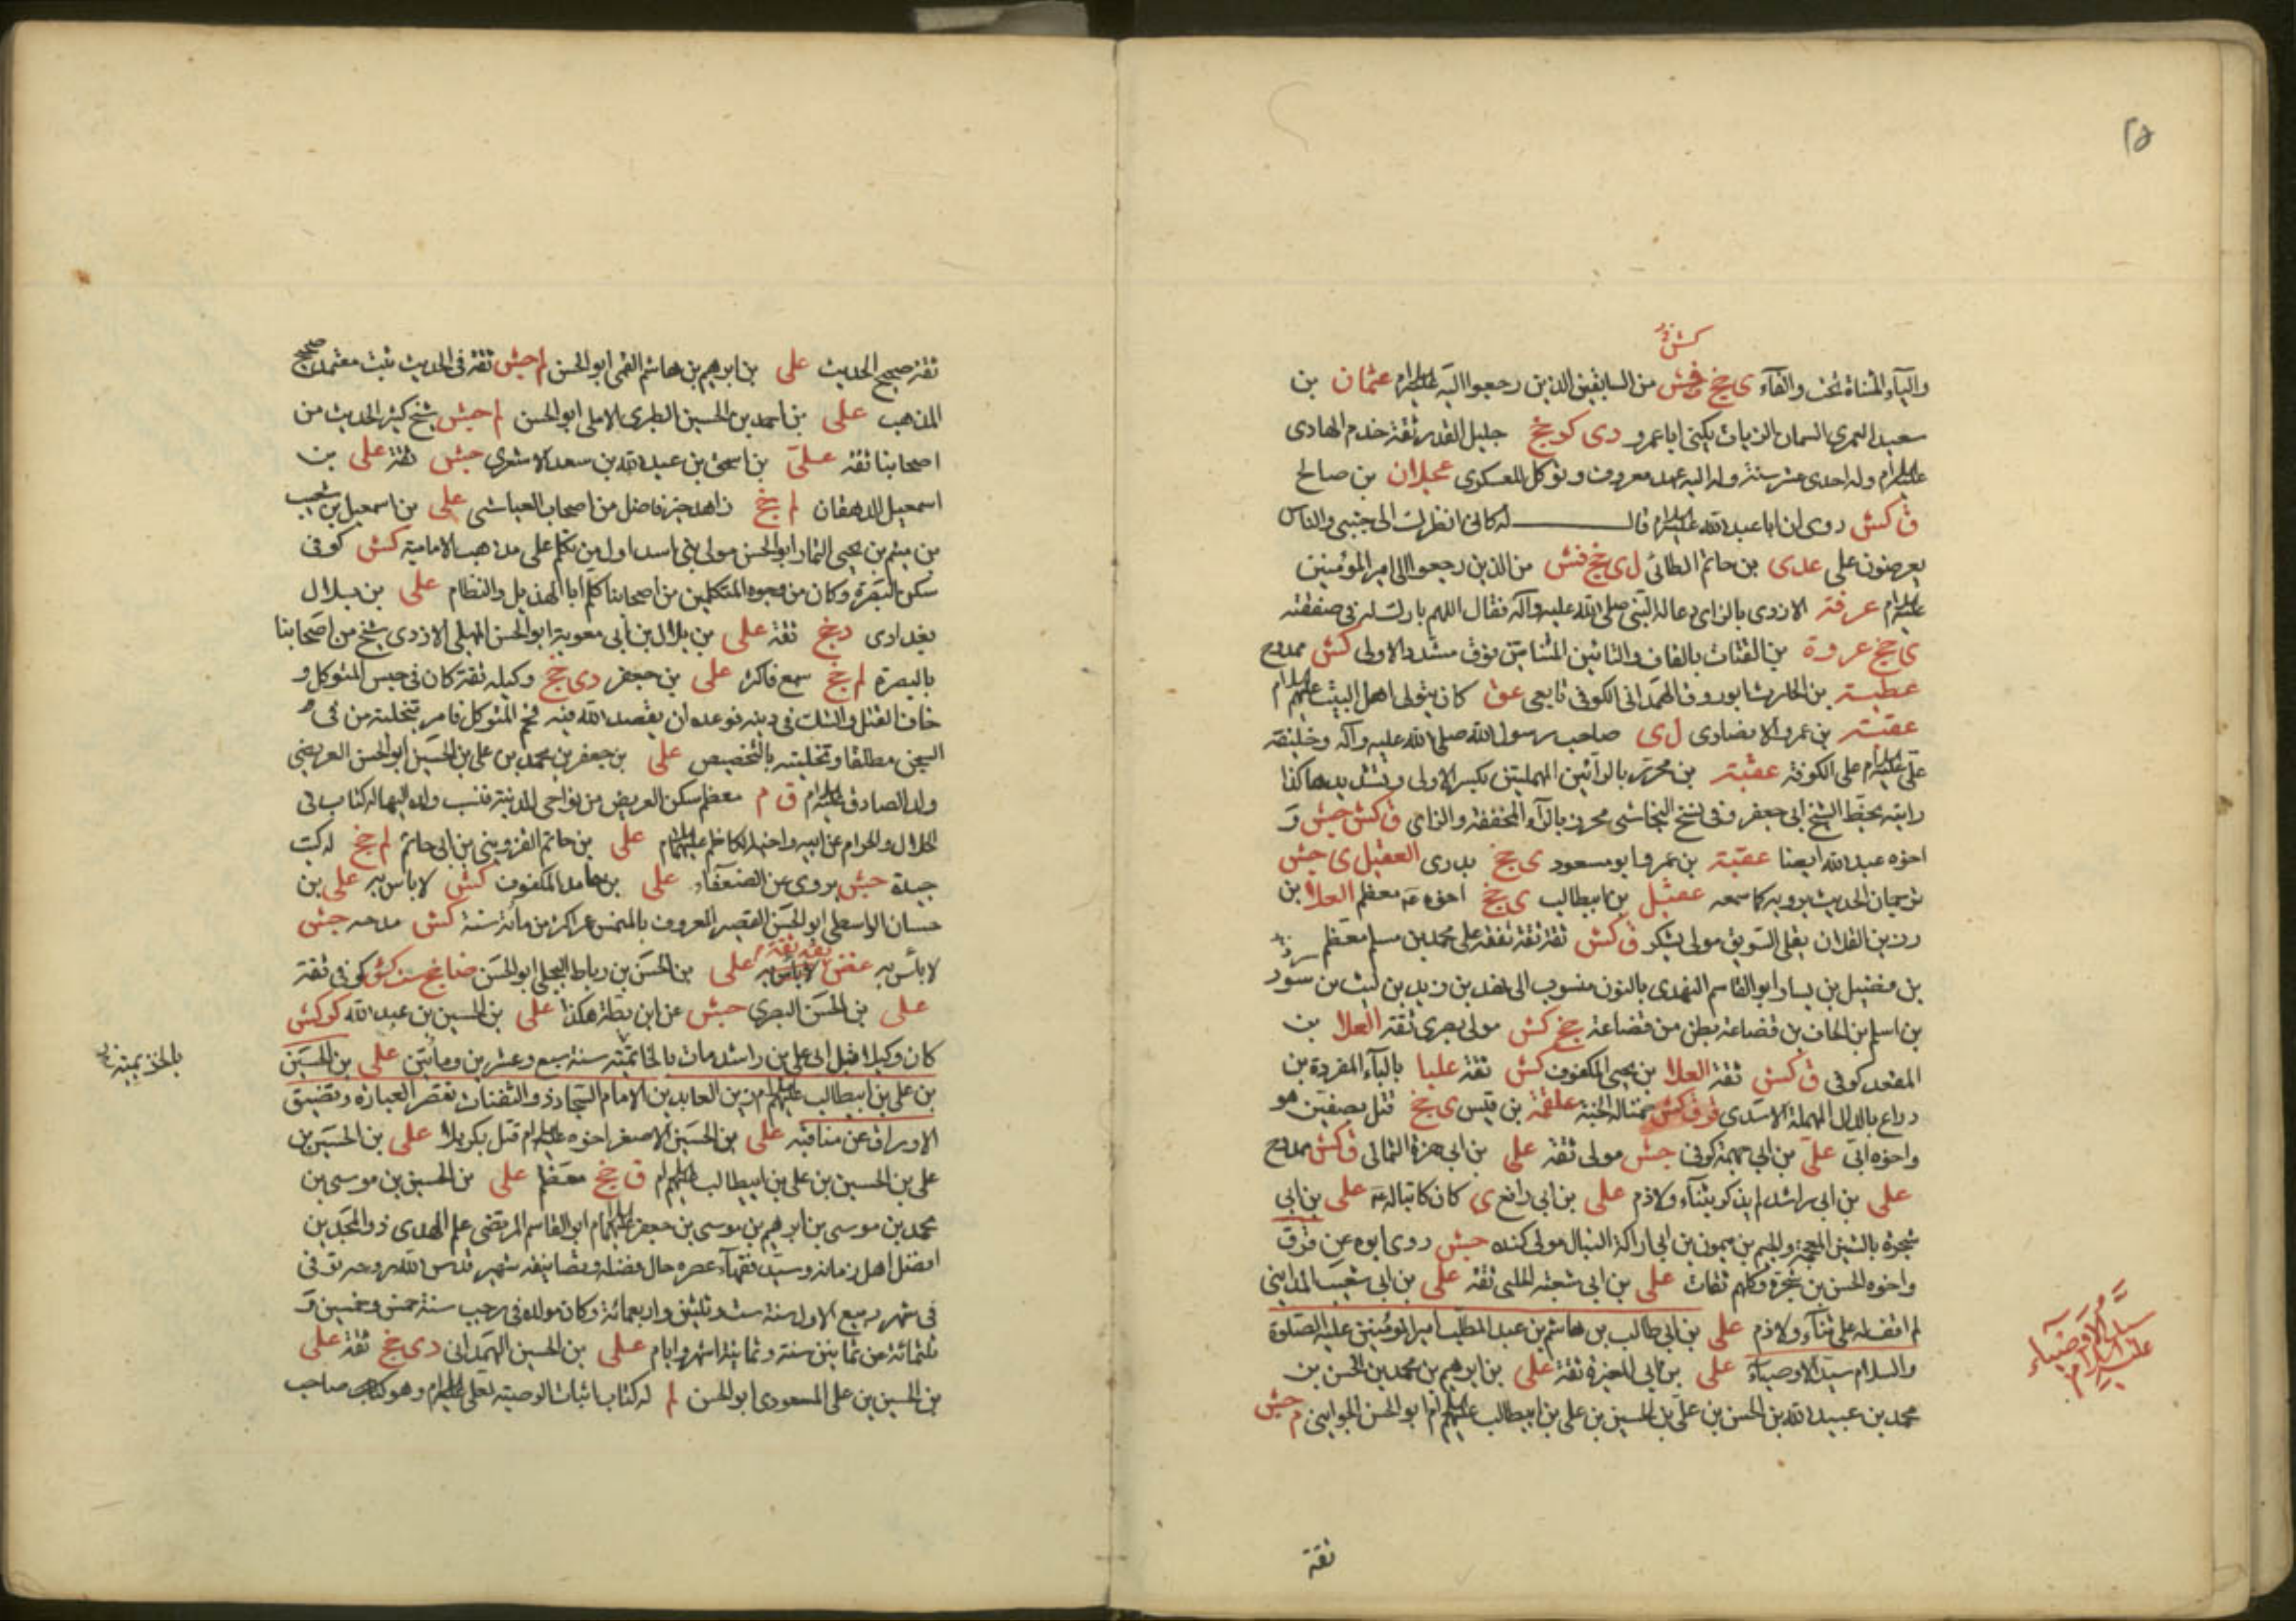 ٢٥
كش
والياء المثناة تحت والفاء ى جخ كش من السابقين الذين رجعوا اليه عليه السلام عثمان بن
سعيد العمري السمان الزيات يكنى ابا عمرو دى كر جخ جليل القدر ثقة خدم الهادى
عليه السلام وله احدى عشر سنة وله اليه عهد معروف وتوكل للعسكرى عجلان بن صالح
ق كش روى ان ابا عبد الله عليه السلام قال له كانى انظر اليك الى جنبى والناس
يعرضون على عدى بن حاتم الطائى ل ى جخ من الذين رجعوا الى امير المؤمنين
عليه السلام عرفة الازدى بالزاى دعا له النبى صلى الله عليه وآله فقال اللهم بارك له فى صفقته
ى جخ عروة بن القتات بالقاف والتائين المثناتين فوق مشدد الاولى كش ممدوح
عطية بن الحارث ابو روق الهمدانى الكوفى تابعى عق كان يتولى اهل البيت عليهم السلام
عقبة بن عمرو الانصارى ل ى صاحب رسول الله صلى الله عليه وآله وخليفة
على عليه السلام على الكوفة عقبة بن محرز بالرائين المهملتين بكسر الاولى وتشديدها كذا
رايته بخط الشيخ ابى جعفر وفى نسخ النجاشى محرز بالراء المخففة والزاى ق كش جش و
اخوه عبد الله ايضا عقبة بن عمرو ابو مسعود ى جخ بدرى العقيلى جش
ترجمان الحديث يرويه كما سمعه عقيل بن ابيطالب ى جخ اخوه معظم العلا بن
رزين القلاء يقلى السويق مولى يشكر ق كش ثقة ثقة تفقه على محمد بن مسلم معظم
بن فضيل بن يسار ابو القاسم النهدى بالنون منسوب الى نهد بن زيد بن ليث بن سود
بن اسلم بن الحاف بن قضاعة بطن من قضاعة جخ كش مولى بصرى ثقة العلا بن
المقعد كوفى ق كش ثقة العلا بن يحيى المكفوف كش ثقة علبا بالباء المفردة بن
دراع بالدال المهملة الاسدى قر ق كش ضمنا له الجنة علقمة بن قيس ى جخ قتل بصفين هو
واخوه ابى على بن ابى جهمة كوفى جش مولى ثقة على بن ابى حمزة الثمالى ق كش ممدوح
على بن ابى راشد لم يذكر بثناء ولا ذم على بن ابى رافع ى كان كاتبا له على بن ابى
شجرة بالشين المعجمة والجيم بن ميمون بن ابى اراكة النبال مولى كنده جش روى ابوه عن قر ق
واخوه الحسن بن شجرة وكلهم ثقات على بن ابى شعبة الحلبى ثقة على بن ابى شعيب المداينى
لم اقف له على ثناء ولا ذم على بن ابى طالب بن هاشم بن عبد المطلب امير المؤمنين عليه الصلوة
والسلام سيد الاوصياء على بن ابى المغيرة ثقة على بن ابرهيم بن محمد بن الحسن بن
محمد بن عبيد الله بن الحسن بن على بن الحسين بن على بن ابيطالب عليهم السلام ابو الحسن الجوانى م جش
سيد الاوصياء
عليه السلام
ثقة
ثقة صحيح الحديث على بن ابرهيم بن هاشم القمى ابو الحسن لم جش ثقة فى الحديث ثبت معتمد صحيح
المذهب على بن احمد بن الحسين الطبرى الاملى ابو الحسن لم جش شيخ كثير الحديث من
اصحابنا ثقة على بن اسحق بن عبد الله بن سعد الاشعرى جش ثقة على بن
اسمعيل الدهقان لم جخ زاهد خير فاضل من اصحاب العياشى على بن اسمعيل بن شعيب
بن ميثم بن يحيى التمار ابو الحسن مولى بنى اسد اول من تكلم على مذهب الامامية كش كوفى
سكن البصرة وكان من وجوه المتكلمين من اصحابنا كلم ابا الهذيل والنظام على بن بلال
بغدادى د جخ ثقة على بن بلال بن ابى معوية ابو الحسن المهلبى الازدى شيخ من اصحابنا
بالبصرة لم جخ سمع فاكثر على بن جعفر دى جخ وكيله ثقة كان فى حبس المتوكل و
خاف القتل والشك فى دينه فوعده ان يقصد الله فيه فحم المتوكل فامر بتخلية من فى
السجن مطلقا وتخليته بالتخصيص على بن جعفر بن محمد بن على بن الحسين ابو الحسن العريضى
ولد الصادق عليه السلام ق م معظم سكن العريض من نواحى المدينة فنسب ولده اليها له كتاب فى
الحلال والحرام عن ابيه واخيه الكاظم عليهما السلام على بن حاتم القزوينى بن ابى حاتم لم جخ له كتب
جيدة جش يروى عن الضعفاء على بن حامد المكفوف كش لا باس به على بن
حسان الواسطى ابو الحسن القصير المعروف بالمنمس عمر اكثر من مائة سنة كش مدحه جش
لا باس به غض ثقة ثقة لا باس به على بن الحسن بن رباط البجلى ابو الحسن ضا جخ ست كش كوفى ثقة
على بن الحسن البصرى جش عن ابن بطة هكذا على بن الحسين بن عبد الله كر كش
كان وكيلا قبل ابى على بن راشد مات بالخاتمية سنة سبع وعشرين ومائتين على بن الحسين
بن على بن ابيطالب عليهم السلام زين العابدين الامام السجاد ذو الثفنات تقصر العبارة وتضيق
الاوراق عن مناقبه على بن الحسين الاصغر اخوه عليه السلام قتل بكربلا على بن الحسين بن
على بن الحسين بن على بن ابيطالب عليهم السلام ق جخ معظم على بن الحسين بن موسى بن
محمد بن موسى بن ابرهيم بن موسى بن جعفر عليهما السلام ابو القاسم المرتضى علم الهدى ذو المجدين
افضل اهل زمانه وسيد فقهاء عصره حال فضله وتصانيفه شهير قدس الله روحه توفى
فى شهر ربيع الاول سنة ست وثلثين واربعمائة وكان مولده فى رجب سنة خمس وخمسين و
ثلثمائة عن ثمانين سنة وثمانية اشهر وايام على بن الحسين الهمدانى دى جخ ثقة على
بن الحسين بن على المسعودى ابو الحسن لم له كتاب اثبات الوصية لعلى عليه السلام وهو كتاب صاحب